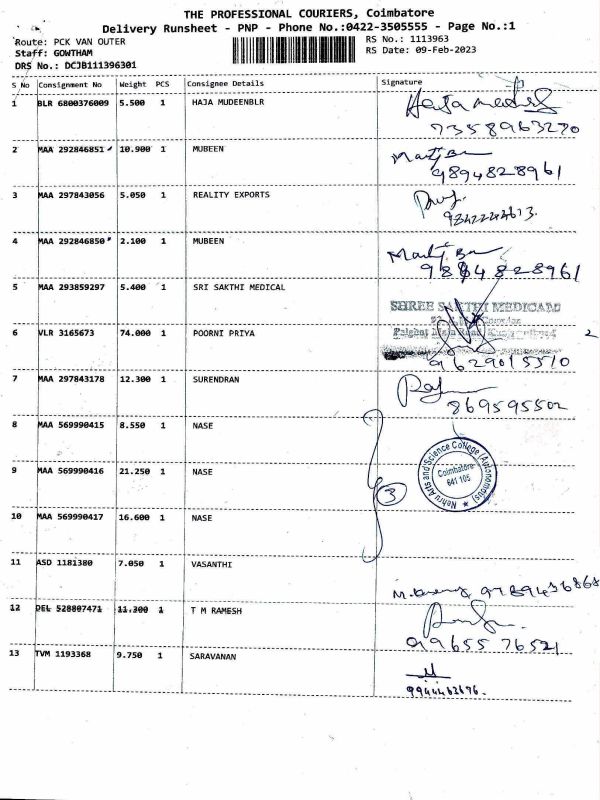 THE PROFESSIONAL COURIERS, Coimbatore
Delivery Runsheet - PNP - Phone No.:0422-3505555 - Page No.:1
Route: PCK VAN OUTER
RS No.: 1113963
Staff: GOWTHAM
RS Date: 09-Feb-2023
DRS No.: DCJB111396301
S No Consignment No Weight PCS Consignee Details Signature
1 BLR 6800376009 5.500 1 HAJA MUDEENBLR
7358963270
2 MAA 292846851 10.900 1 MUBEEN
9894828961
3 MAA 297843056 5.050 1 REALITY EXPORTS
4 MAA 292846850 2.100 1 MUBEEN
5 MAA 293859297 5.400 1 SRI SAKTHI MEDICAL
SHREE SAKTHI MEDICALS
6 VLR 3165673 74.000 1 POORNI PRIYA
2
9629015510
7 MAA 297843178 12.300 1 SURENDRAN
869595502
8 MAA 569990415 8.550 1 NASE
9 MAA 569990416 21.250 1 NASE
3
Nehru Arts and Science College (Autonomous)
Coimbatore
641 105
10 MAA 569990417 16.600 1 NASE
11 ASD 1181380 7.050 1 VASANTHI
9789436868
12 DEL 528807471 11.300 1 T M RAMESH
9965576521
13 TVM 1193368 9.750 1 SARAVANAN